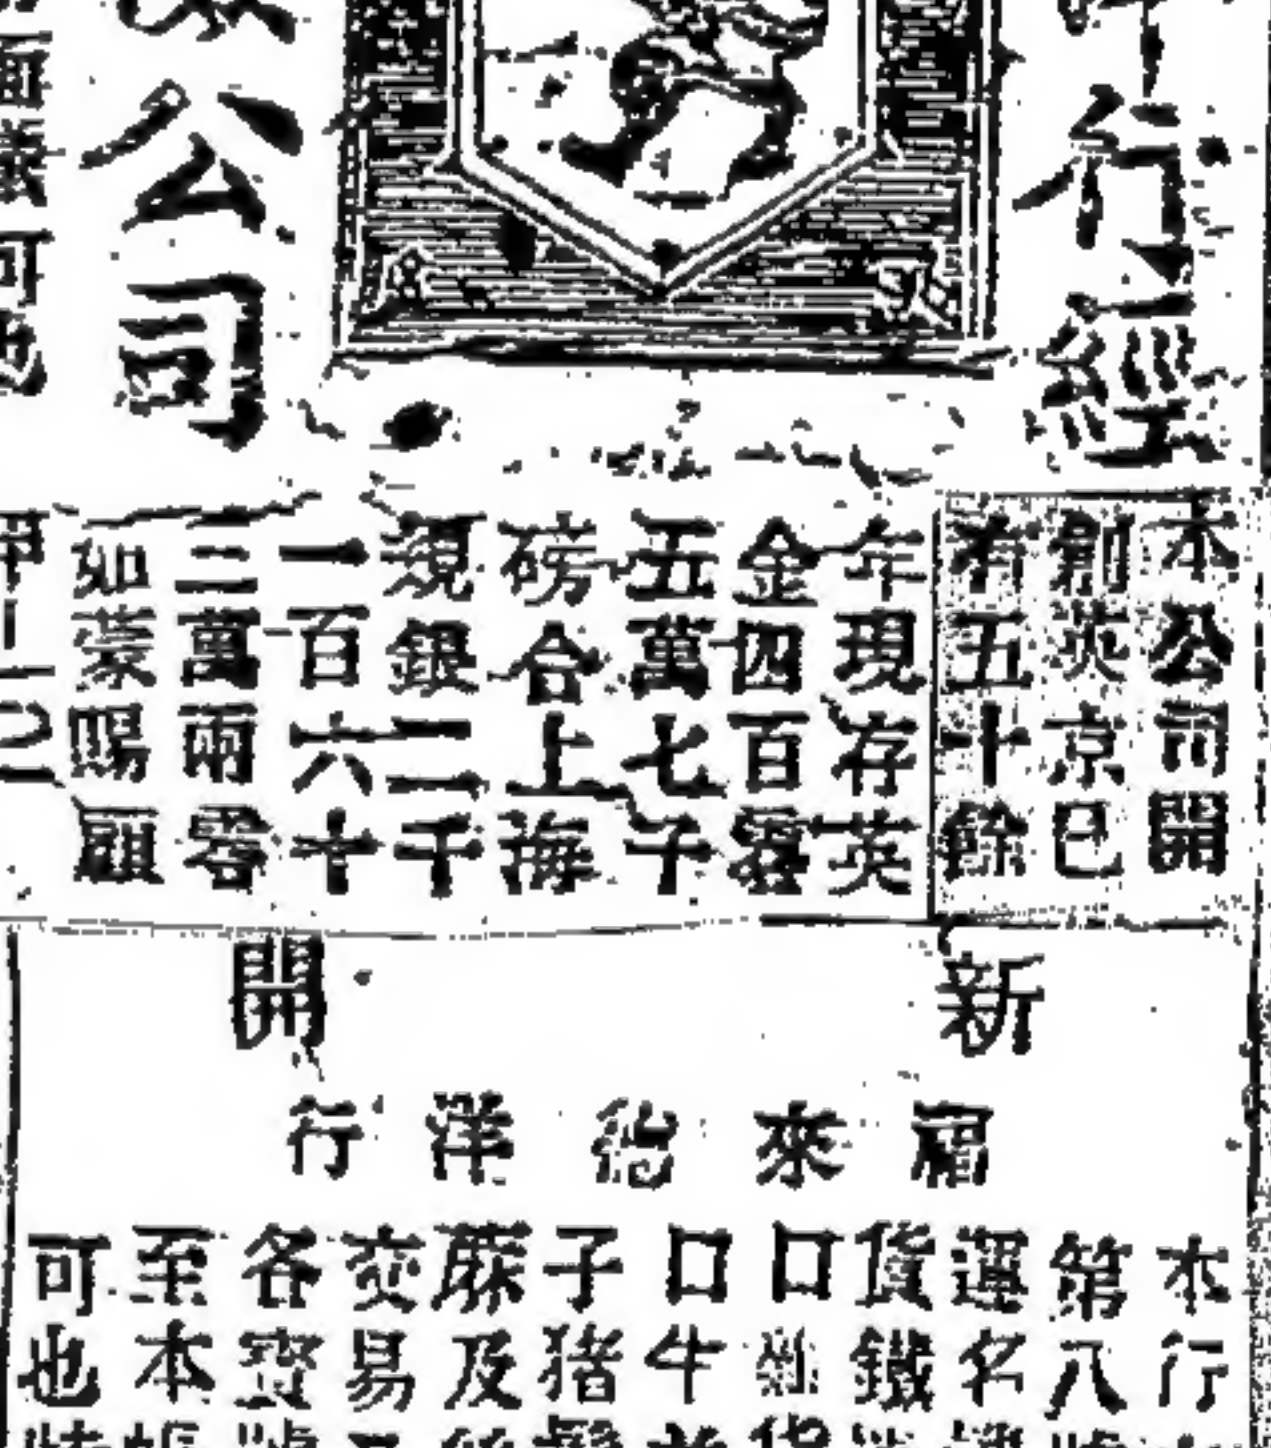 行經
公司
面議可也
本公司開
創英京已
有五十餘
年現存英
金四百零
五萬七千
磅合上海
規銀二千
一百六十
三萬兩零
如蒙賜顧
新開
福來德洋行
本行
第八
運名
貨鐵
口雜
口牛
子豬
蔴及
交易
各寶
至本
可也